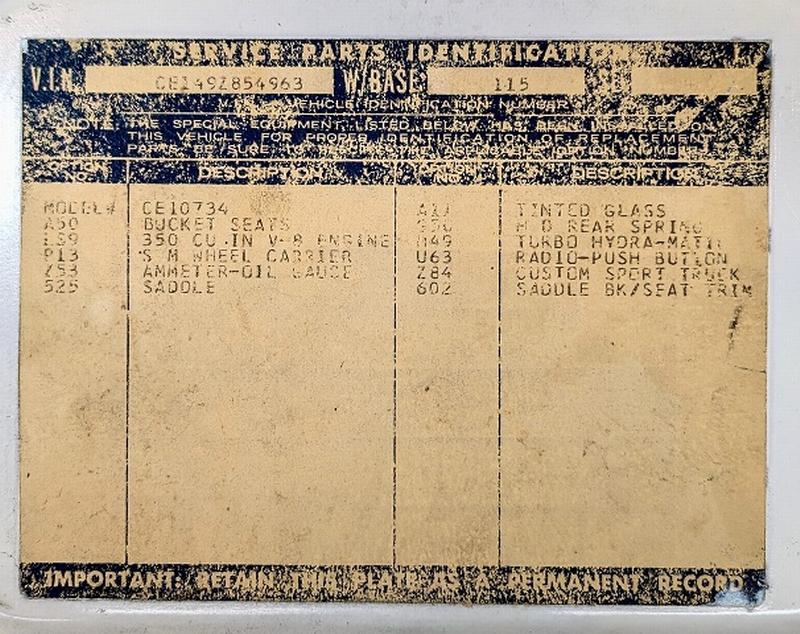 SERVICE PARTS IDENTIFICATION
V.I.N. CE149Z854963 W/BASE 115
VEHICLE IDENTIFICATION NUMBER
NOTE: THE SPECIAL EQUIPMENT LISTED BELOW HAS BEEN INSTALLED ON
THIS VEHICLE FOR PROPER IDENTIFICATION OF REPLACEMENT
PARTS. BE SURE TO THE APPLICABLE OPTION
NO. DESCRIPTION DESCRIPTION
MODEL# CE10734 TINTED GLASS
A50 BUCKET SEATS H D REAR SPRING
LS9 350 CU.IN V-8 ENGINE M49 TURBO HYDRA-MATIC
P13 S M WHEEL CARRIER U63 RADIO-PUSH BUTTON
Z53 AMMETER-OIL GAUGE Z84 CUSTOM SPORT TRUCK
525 SADDLE 602 SADDLE BK/SEAT TRIM
IMPORTANT: RETAIN THIS PLATE AS A PERMANENT RECORD